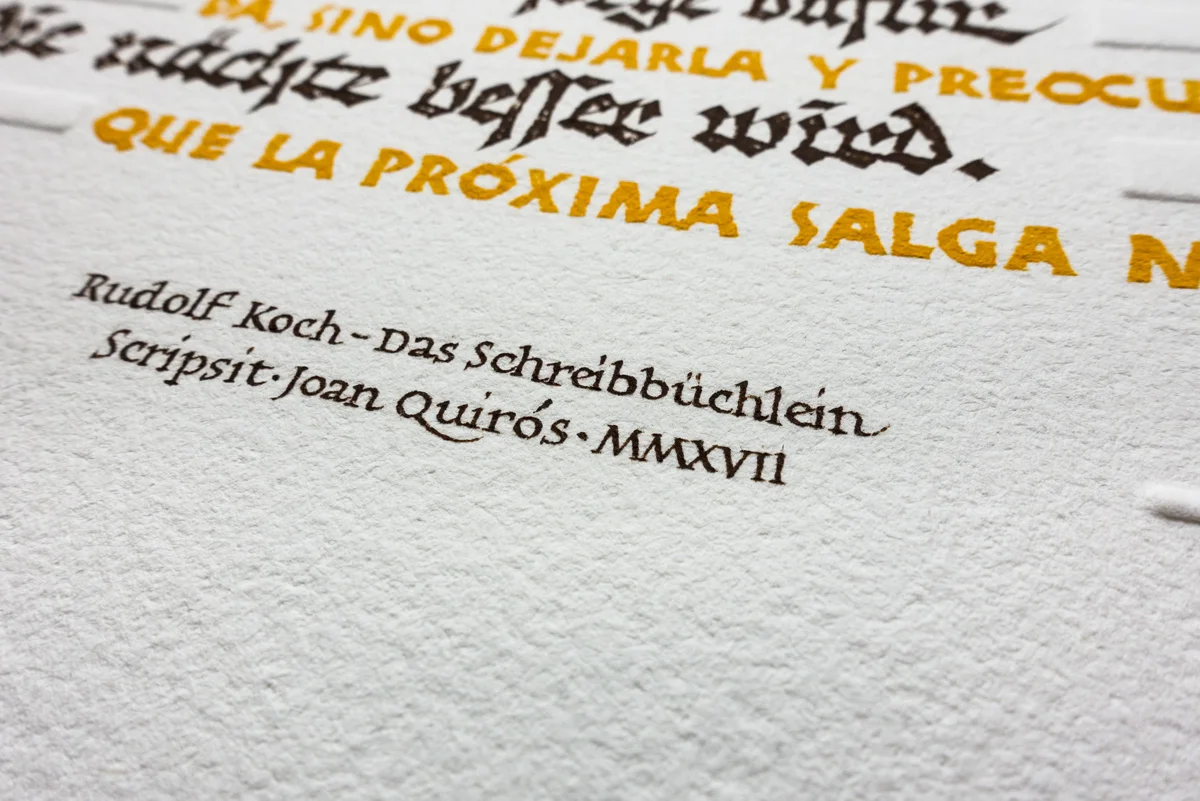 DA, SINO DEJARLA Y PREOCU
nächste besser wird.
QUE LA PRÓXIMA SALGA
Rudolf Koch - Das Schreibbüchlein
Scripsit · Joan Quirós · MMXVII